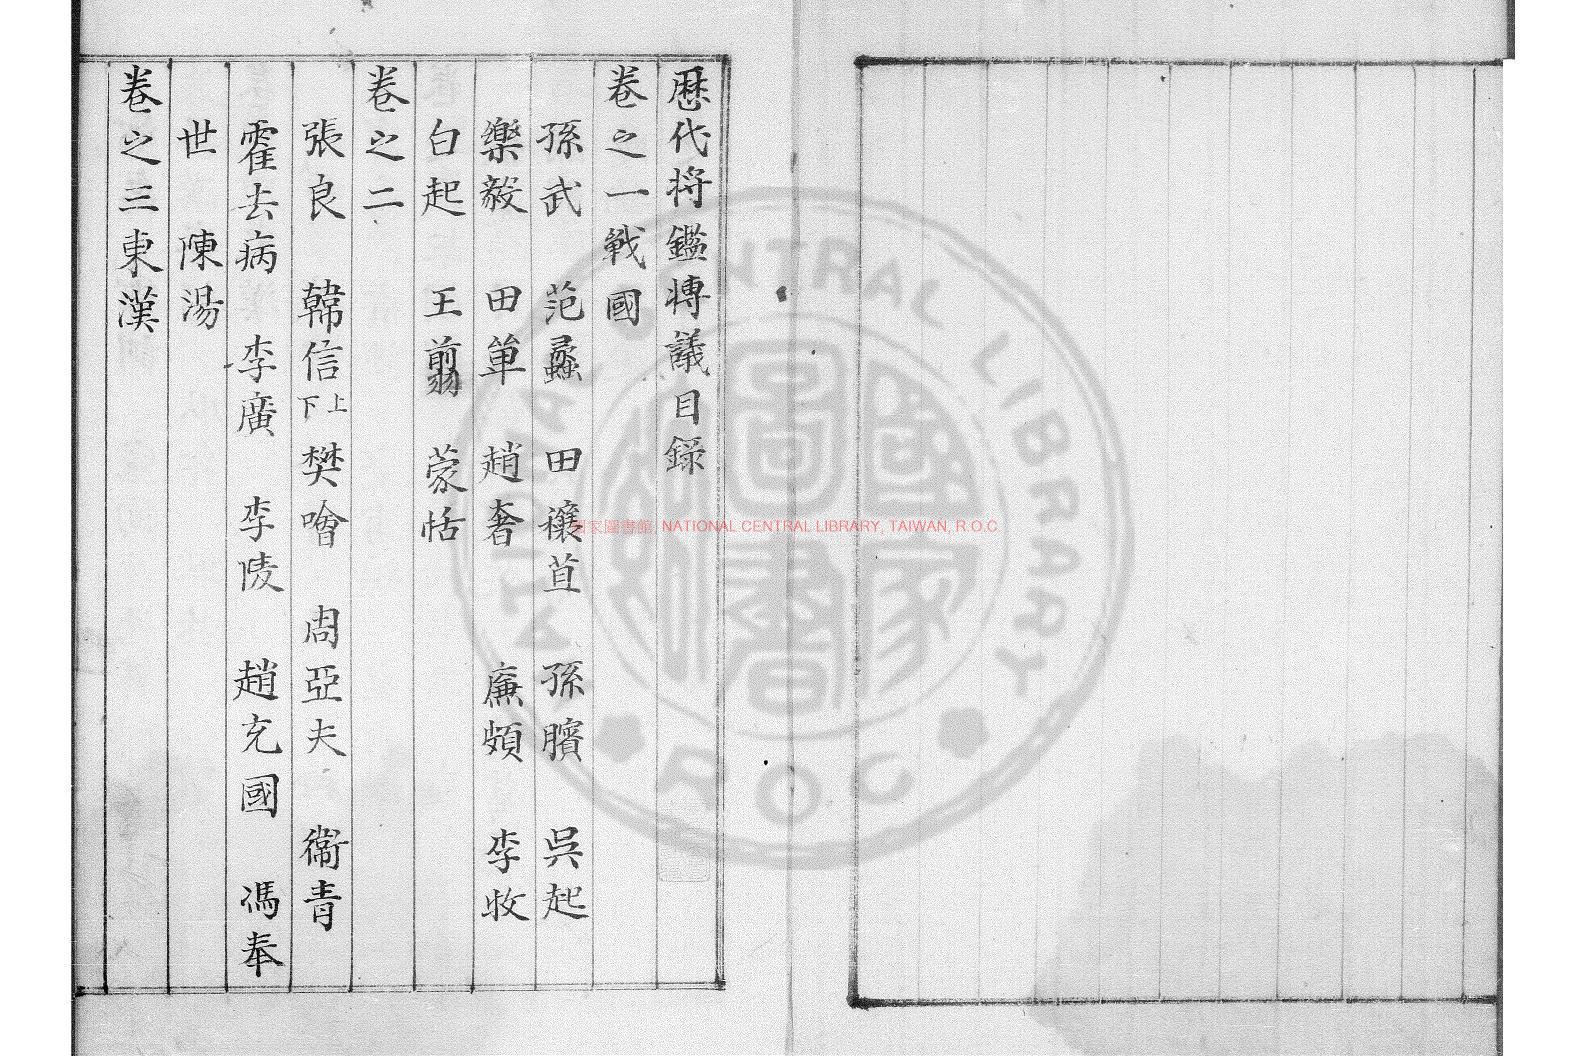 歷代将鑑博議目録
卷之一戰國
孫武 范蠡 田穰苴 孫臏 吳起
樂毅 田單 趙奢 廉頗 李牧
白起 王翦 蒙恬
卷之二
張良 韓信上下 樊噲 周亞夫 衞青
霍去病 李廣 李陵 趙充國 馮奉
世 陳湯
卷之三東漢
國家圖書館, NATIONAL CENTRAL LIBRARY, TAIWAN, R.O.C